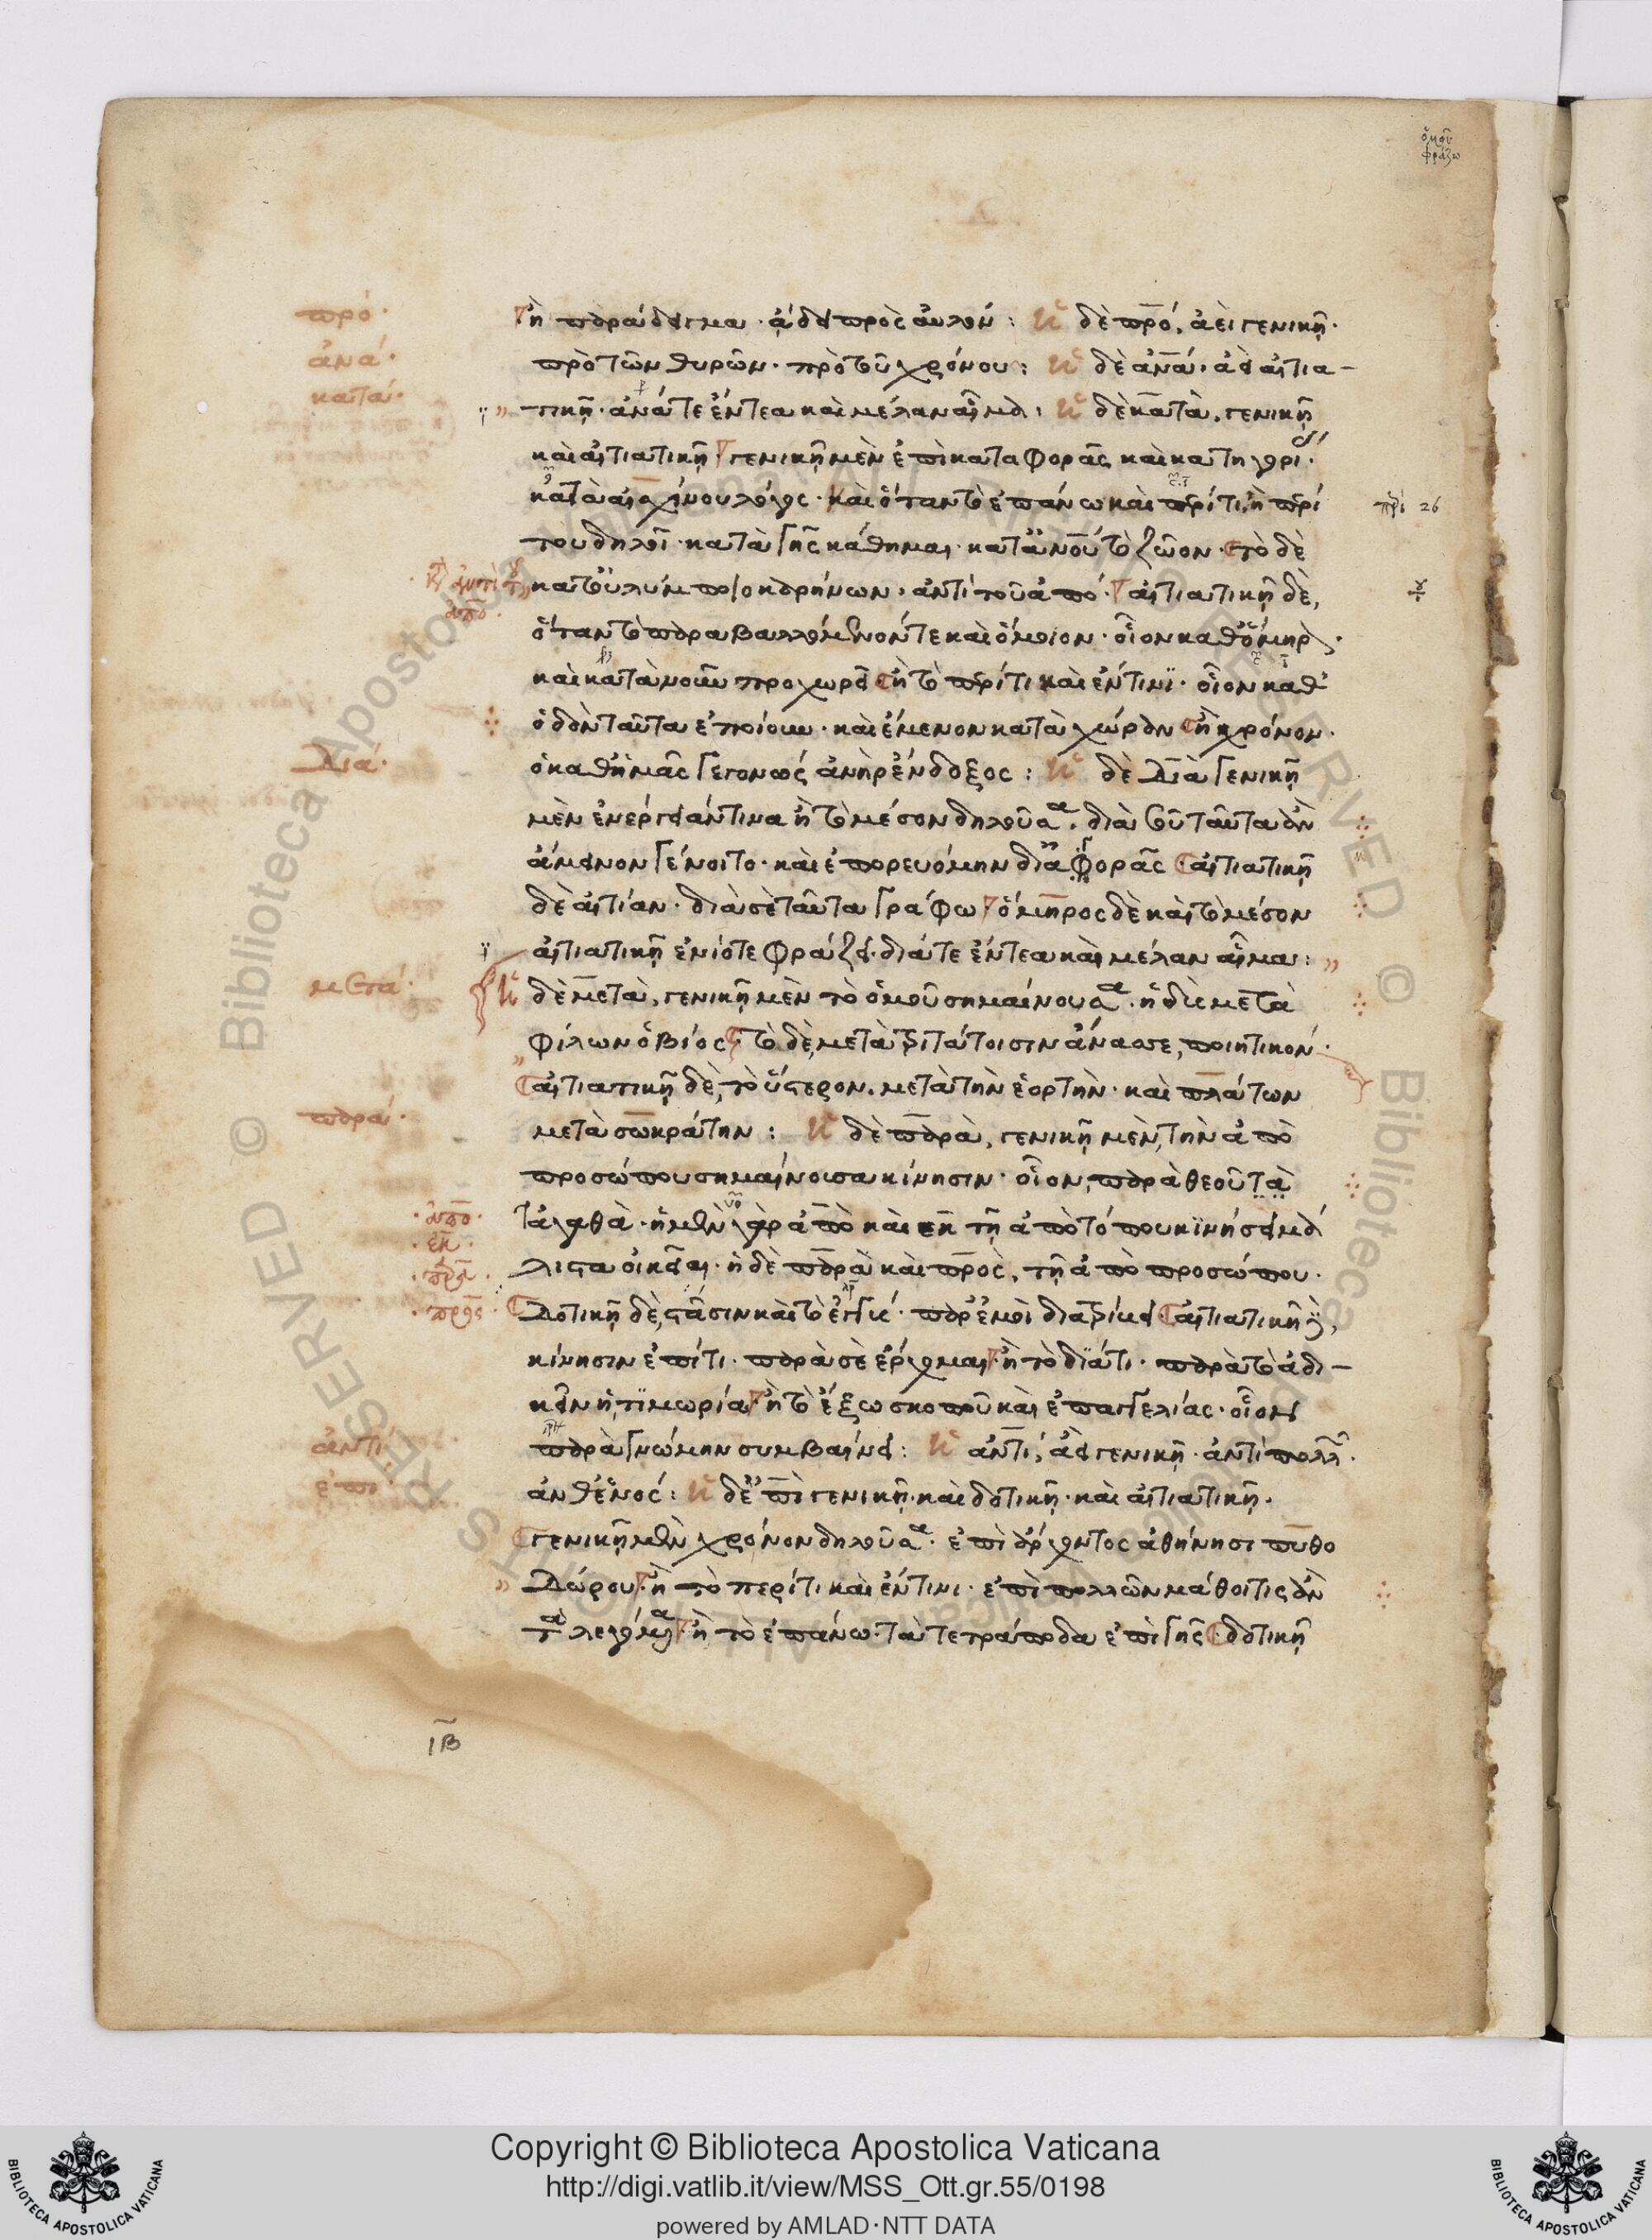 ὁμοῦ
φράζω
πρό·
ἢ παράδειγμα· ᾄδει πρὸς αὐλόν: Ἡ δὲ πρό, ἀεὶ γενικῇ·
ἀνά·
πρὸ τῶν θυρῶν· πρὸ τοῦ χρόνου: Ἡ δὲ ἀνά· ἀεὶ αἰτια-
κατά·
τικῇ· ἀνά τε ἔντεα καὶ μέλαν αἷμα: Ἡ δὲ κατὰ, γενικῇ
καὶ αἰτιατικῇ· γενικῇ μὲν ἐπὶ καταφορᾶς καὶ κατηγορί·
κατὰ αἰσχίνου λόγος· καὶ ὅταν τὸ ἐπάνω καὶ περί τι, ἢ περί
περὶ 26
του δηλοῖ· κατὰ γῆς κάθημαι· κατὰ νοῦ τὸ ζῶον· τὸ δὲ
κατ' οὐλύμποιο καρήνων, ἀντὶ τοῦ ἀπό· αἰτιατικῇ δὲ,
ὅταν τὸ παραβαλλόμενόν τε καὶ ὅμοιον· οἷον καθ' ὅμηρον·
καὶ κατὰ νοῦν προχωρεῖ ἢ τὸ περί τι καὶ ἔν τινι· οἷον καθ'
ὁδὸν ταῦτα ἐποίουν· καὶ ἔμενον κατὰ χώραν ἢ χρόνον·
διά·
ὁ καθ' ἡμᾶς γεγονὼς ἀνὴρ ἔνδοξος: Ἡ δὲ διὰ γενικῇ
μὲν ἐνεργεῖν τινα ἢ τὸ μέσον δηλοῦσα· διὰ τοῦ ταῦτα ἂν
ἄμεινον γένοιτο· καὶ ἐπορευόμην δι' ἀγορᾶς αἰτιατικῇ
δὲ αἰτίαν· διὰ σὲ ταῦτα γράφω ὅμηρος δὲ καὶ τὸ μέσον
αἰτιατικῇ ἐνίοτε φράζει· διά τε ἔντεα καὶ μέλαν αἷμα:
μετά·
Ἡ δὲ μετὰ, γενικῇ μὲν τὸ ὁμοῦ σημαίνουσα· ἡδὺ μετὰ
φίλων ὁ βίος τὸ δὲ, μετὰ τριτάτοισιν ἄνασσε, ποιητικόν·
αἰτιατικῇ δὲ, τὸ ὕστερον. μετὰ τὴν ἑορτὴν· καὶ πλάτων
παρά·
μετὰ σωκράτην: Ἡ δὲ παρὰ, γενικῇ μὲν, τὴν ἀπὸ
προσώπου σημαίνουσα κίνησιν· οἷον, παρὰ θεοῦ τὰ
ἀπό·
τἀγαθὰ· ἡ μὲν γὰρ ἀπὸ καὶ ἐκ τῇ ἀπὸ τόπου κινήσει μά
ἐκ·
λιστα οἰκεῖαι· ἡ δὲ παρὰ καὶ πρὸς, τῇ ἀπὸ προσώπου·
παρά·
πρός·
Δοτικῇ δὲ, στάσιν καὶ τὸ ἐγγύ· παρ' ἐμοὶ διατρίβει αἰτιατικῇ δὲ,
κίνησιν ἐπί τι· παρὰ σὲ ἔρχομαι ἢ τὸ διά τι· παρὰ τὸ ἀδι-
κεῖν ἡ τιμωρία ἢ τὸ ἔξω σκοποῦ καὶ ἐπαγγελίας· οἷον
ἀντί
παρὰ γνώμην συμβαίνει: Ἡ ἀντί, ἀεὶ γενικῇ· ἀντὶ πολλῶν·
ἐπι·
ἀνθ' ἑνός: Ἡ δὲ ἐπὶ γενικῇ· καὶ δοτικῇ· καὶ αἰτιατικῇ·
γενικῇ μὲν χρόνον δηλοῦσα· ἐπὶ ἄρχοντος ἀθήνησι πυθο
δώρου ἢ τὸ περί τι καὶ ἔν τινι· ἐπὶ πολλῶν μάθοι τις ἂν
τὰ λεγόμενα ἢ τὸ ἐπάνω· τὰ τετράποδα ἐπὶ γῆς δοτικῇ
ιβ
Copyright © Biblioteca Apostolica Vaticana
http://digi.vatlib.it/view/MSS_Ott.gr.55/0198
powered by AMLAD·NTT DATA